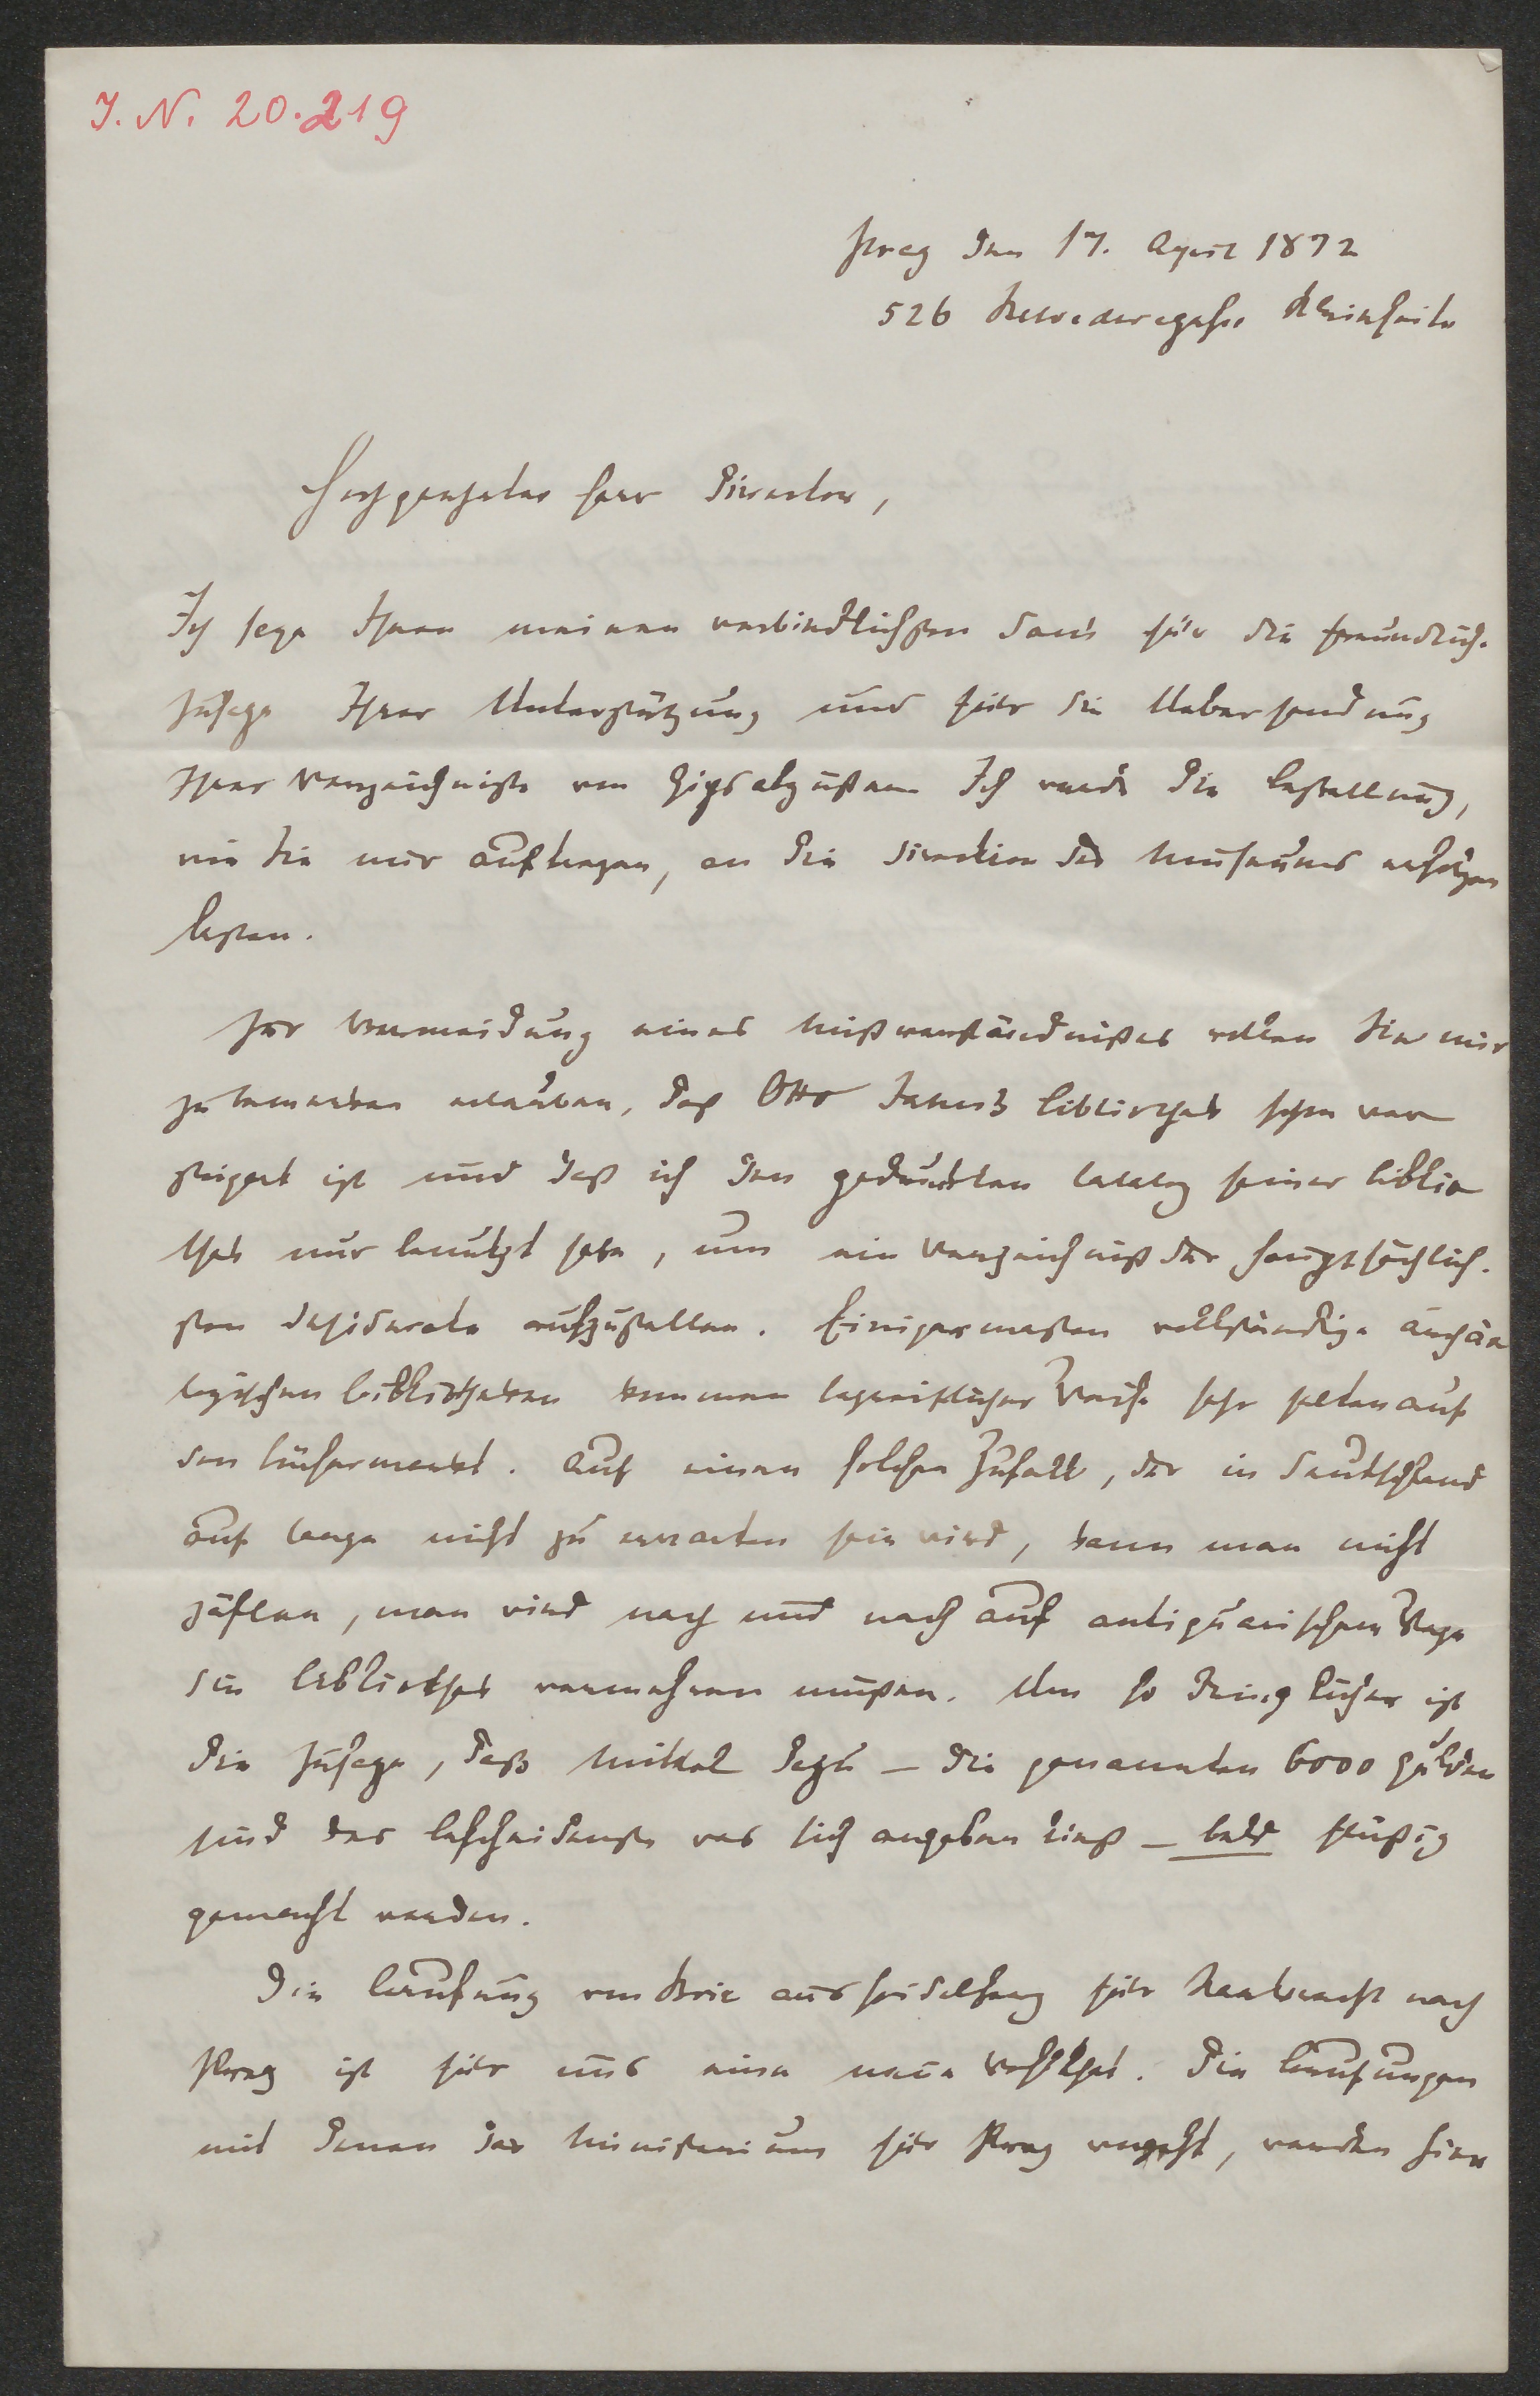 J. N. 20.219
Prag den 17. April 1872
526 Belvederegasse Kleinseite
Hochgeehrter Herr Director,
Ich sage Ihnen meinen verbindlichsten Dank für die freundliche
Zusage Ihrer Unterstützung und für die Uebersendung
Ihres Verzeichnisses von Gipsabgüssen Ich werde die Bestellung,
wie Sie mir auftragen, an die Direction des Museums erfolgen
lassen.
Zur Vermeidung eines Mißverständnisses wollen Sie mir
zu bemerken erlauben, daß Otto Jahns Bibliothek schon ver
steigert ist und daß ich den gedruckten Catalog seiner Biblio
thek nur benutzt habe, um ein Verzeichniß der hauptsächlich-
sten Desiderata aufzustellen. Einigermassen vollständige archäo
logischen Bibliotheken kommen begreiflicher Weise sehr selten auf
den Büchermarkt. Auf einen solchen Zufall, der in Deutschland
auf lange nicht zu erwarten sein wird, kann man nicht
zählen, man wird nach und nach auf antiquarischem Wege
die Bibliothek vermehren müssen. Um so dringlicher ist
die Zusage, daß Mittel dazu – die genannten 6000 Gulden
sind das bescheidenste was sich angeben ließ – bald flüßig
gemacht werden.
Die Berufung von Brie aus Heidelberg für nach
Prag ist für uns eine neue Wohlthat. Die Berufungen
mit denen das Ministerium für Prag vorgeht, werden hier